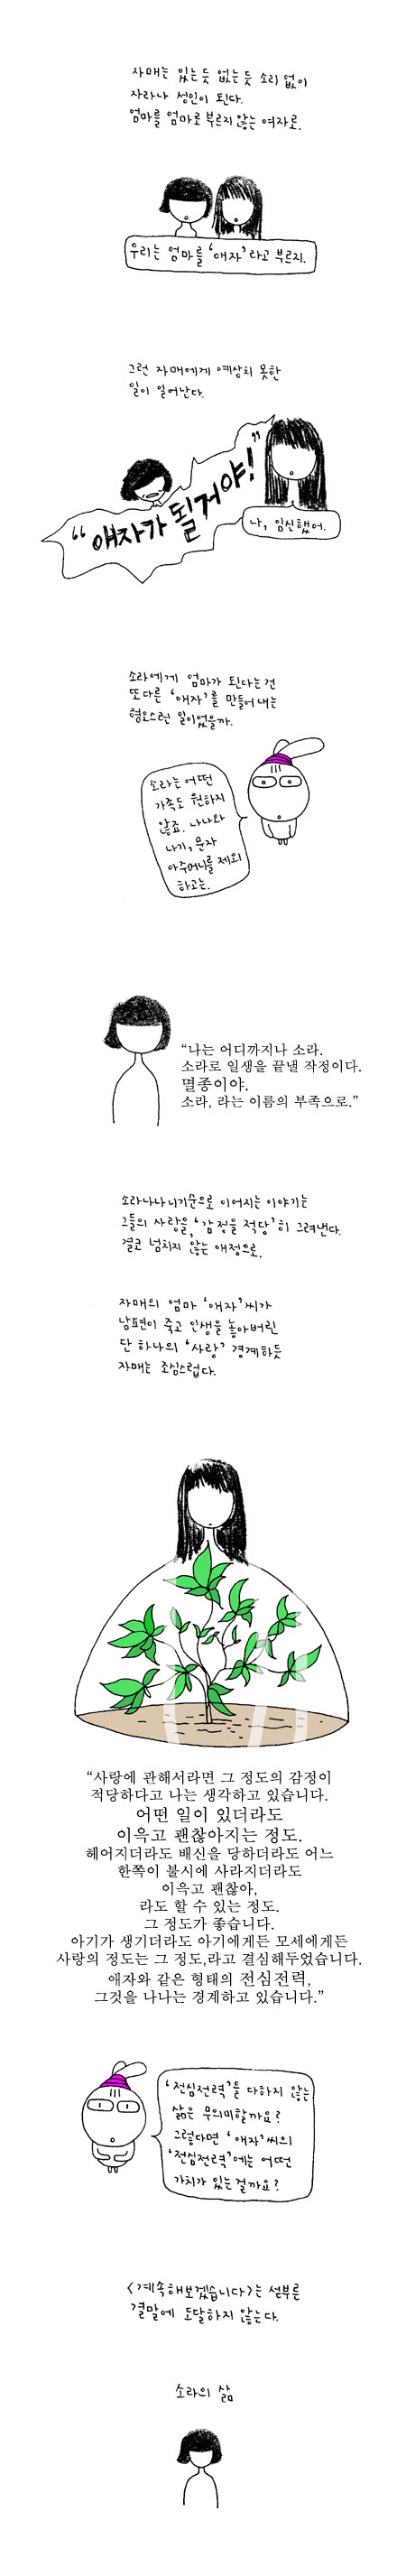 자매는 있는 듯 없는 듯 소리 없이
자라나 성인이 된다.
엄마를 엄마로 부르지 않는 여자로.
우리는 엄마를 ‘애자’라고 부르지.
그런 자매에게 예상치 못한
일이 일어난다.
“애자가 될거야!”
나, 임신했어.
소라에게 엄마가 된다는 건
또다른 ‘애자’를 만들어 내는
혐오스런 일이었을까.
소라는 어떤
가족도 원하지
않죠. 나나와
나기, 문자
아주머니를 제외
하고는.
“나는 어디까지나 소라.
소라로 일생을 끝낼 작정이다.
멸종이야.
소라, 라는 이름의 부족으로.”
소라나나나기순으로 이어지는 이야기는
그들의 사랑을, ‘감정을 적당’히 그려낸다.
결코 넘치지 않는 애정으로.
자매의 엄마 ‘애자’씨가
남편이 죽고 인생을 놓아버린
단 하나의 ‘사랑’ 경계하듯
자매는 조심스럽다.
“사랑에 관해서라면 그 정도의 감정이
적당하다고 나는 생각하고 있습니다.
어떤 일이 있더라도
이윽고 괜찮아지는 정도.
헤어지더라도 배신을 당하더라도 어느
한쪽이 불시에 사라지더라도
이윽고 괜찮아,
라도 할 수 있는 정도.
그 정도가 좋습니다.
아기가 생기더라도 아기에게든 모세에게든
사랑의 정도는 그 정도,라고 결심해두었습니다.
애자와 같은 형태의 전심전력,
그것을 나나는 경계하고 있습니다.”
‘전심전력’을 다하지 않는
삶은 무의미할까요?
그렇다면 ‘애자’씨의
‘전심전력’에는 어떤
가치가 있는 걸까요?
<계속해보겠습니다>는 섣부른
결말에 도달하지 않는다.
소라의 삶